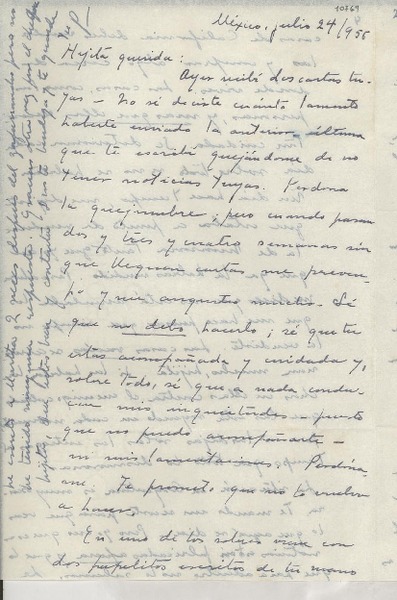 10769
México, julio 24/955
Hijita querida:
Ayer recibí dos cartas tu-
yas - No sé decirte cuánto lamento
haberte enviado la anterior última
que te escribí quejándome de no
tener noticias tuyas. Perdona
la quejumbre; pero cuando pasan
dos y tres y cuatro semanas sin
que lleguen cartas, me preocu-
po y me angustio mucho. Sé
que no debo hacerlo; sé que tu
estás acompañada y cuidada y,
sobre todo, sé que a nada condu-
cen mis inquietudes - puesto
que no puedo acompañarte -
ni mis lamentaciones. Perdóna-
me. Te prometo que no te vuelvo
a hacer.
En uno de los sobres viene con
dos papelitos escritos de tu mano
2 veces después del
no
he tenido respuesta. Gracias otra vez por el
hijita, que Dios te bendiga y te guarde